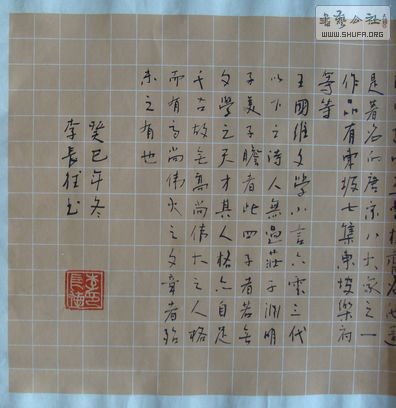 書藝公社
WWW.SHUFA.ORG
是著名的唐宋八大家之一
作品有東坡七集東坡樂府
等等
王國維文學小言六雲三代
以下之詩人無過莊子淵明
子美子瞻者此四子者若無
文學之天才其人格亦自足
千古故無高尚偉大之人格
而有高尚偉大之文章者殆
未之有也
癸巳年冬
李長